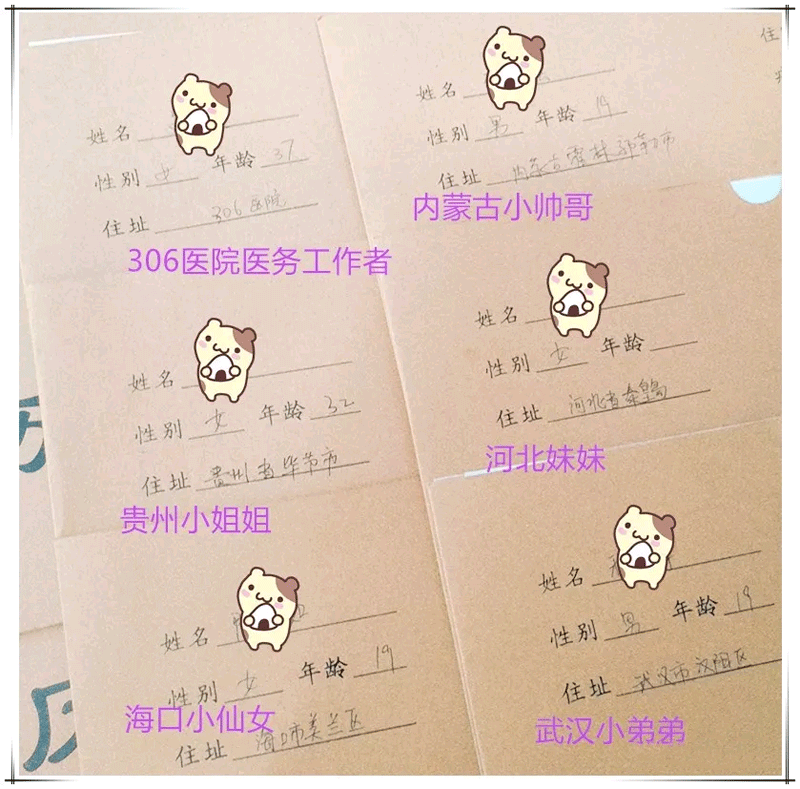 姓名
性别 女 年龄 37
住址 306医院
306医院医务工作者
姓名
性别 男 年龄 19
住址 内蒙古霍林郭勒市
内蒙古小帅哥
姓名
性别 女 年龄 32
住址 贵州省毕节市
贵州小姐姐
姓名
性别 女 年龄
住址 河北省秦皇岛
河北妹妹
姓名
性别 女 年龄 19
住址 海口市美兰区
海口小仙女
姓名
性别 男 年龄 19
住址 武汉市汉阳区
武汉小弟弟
住